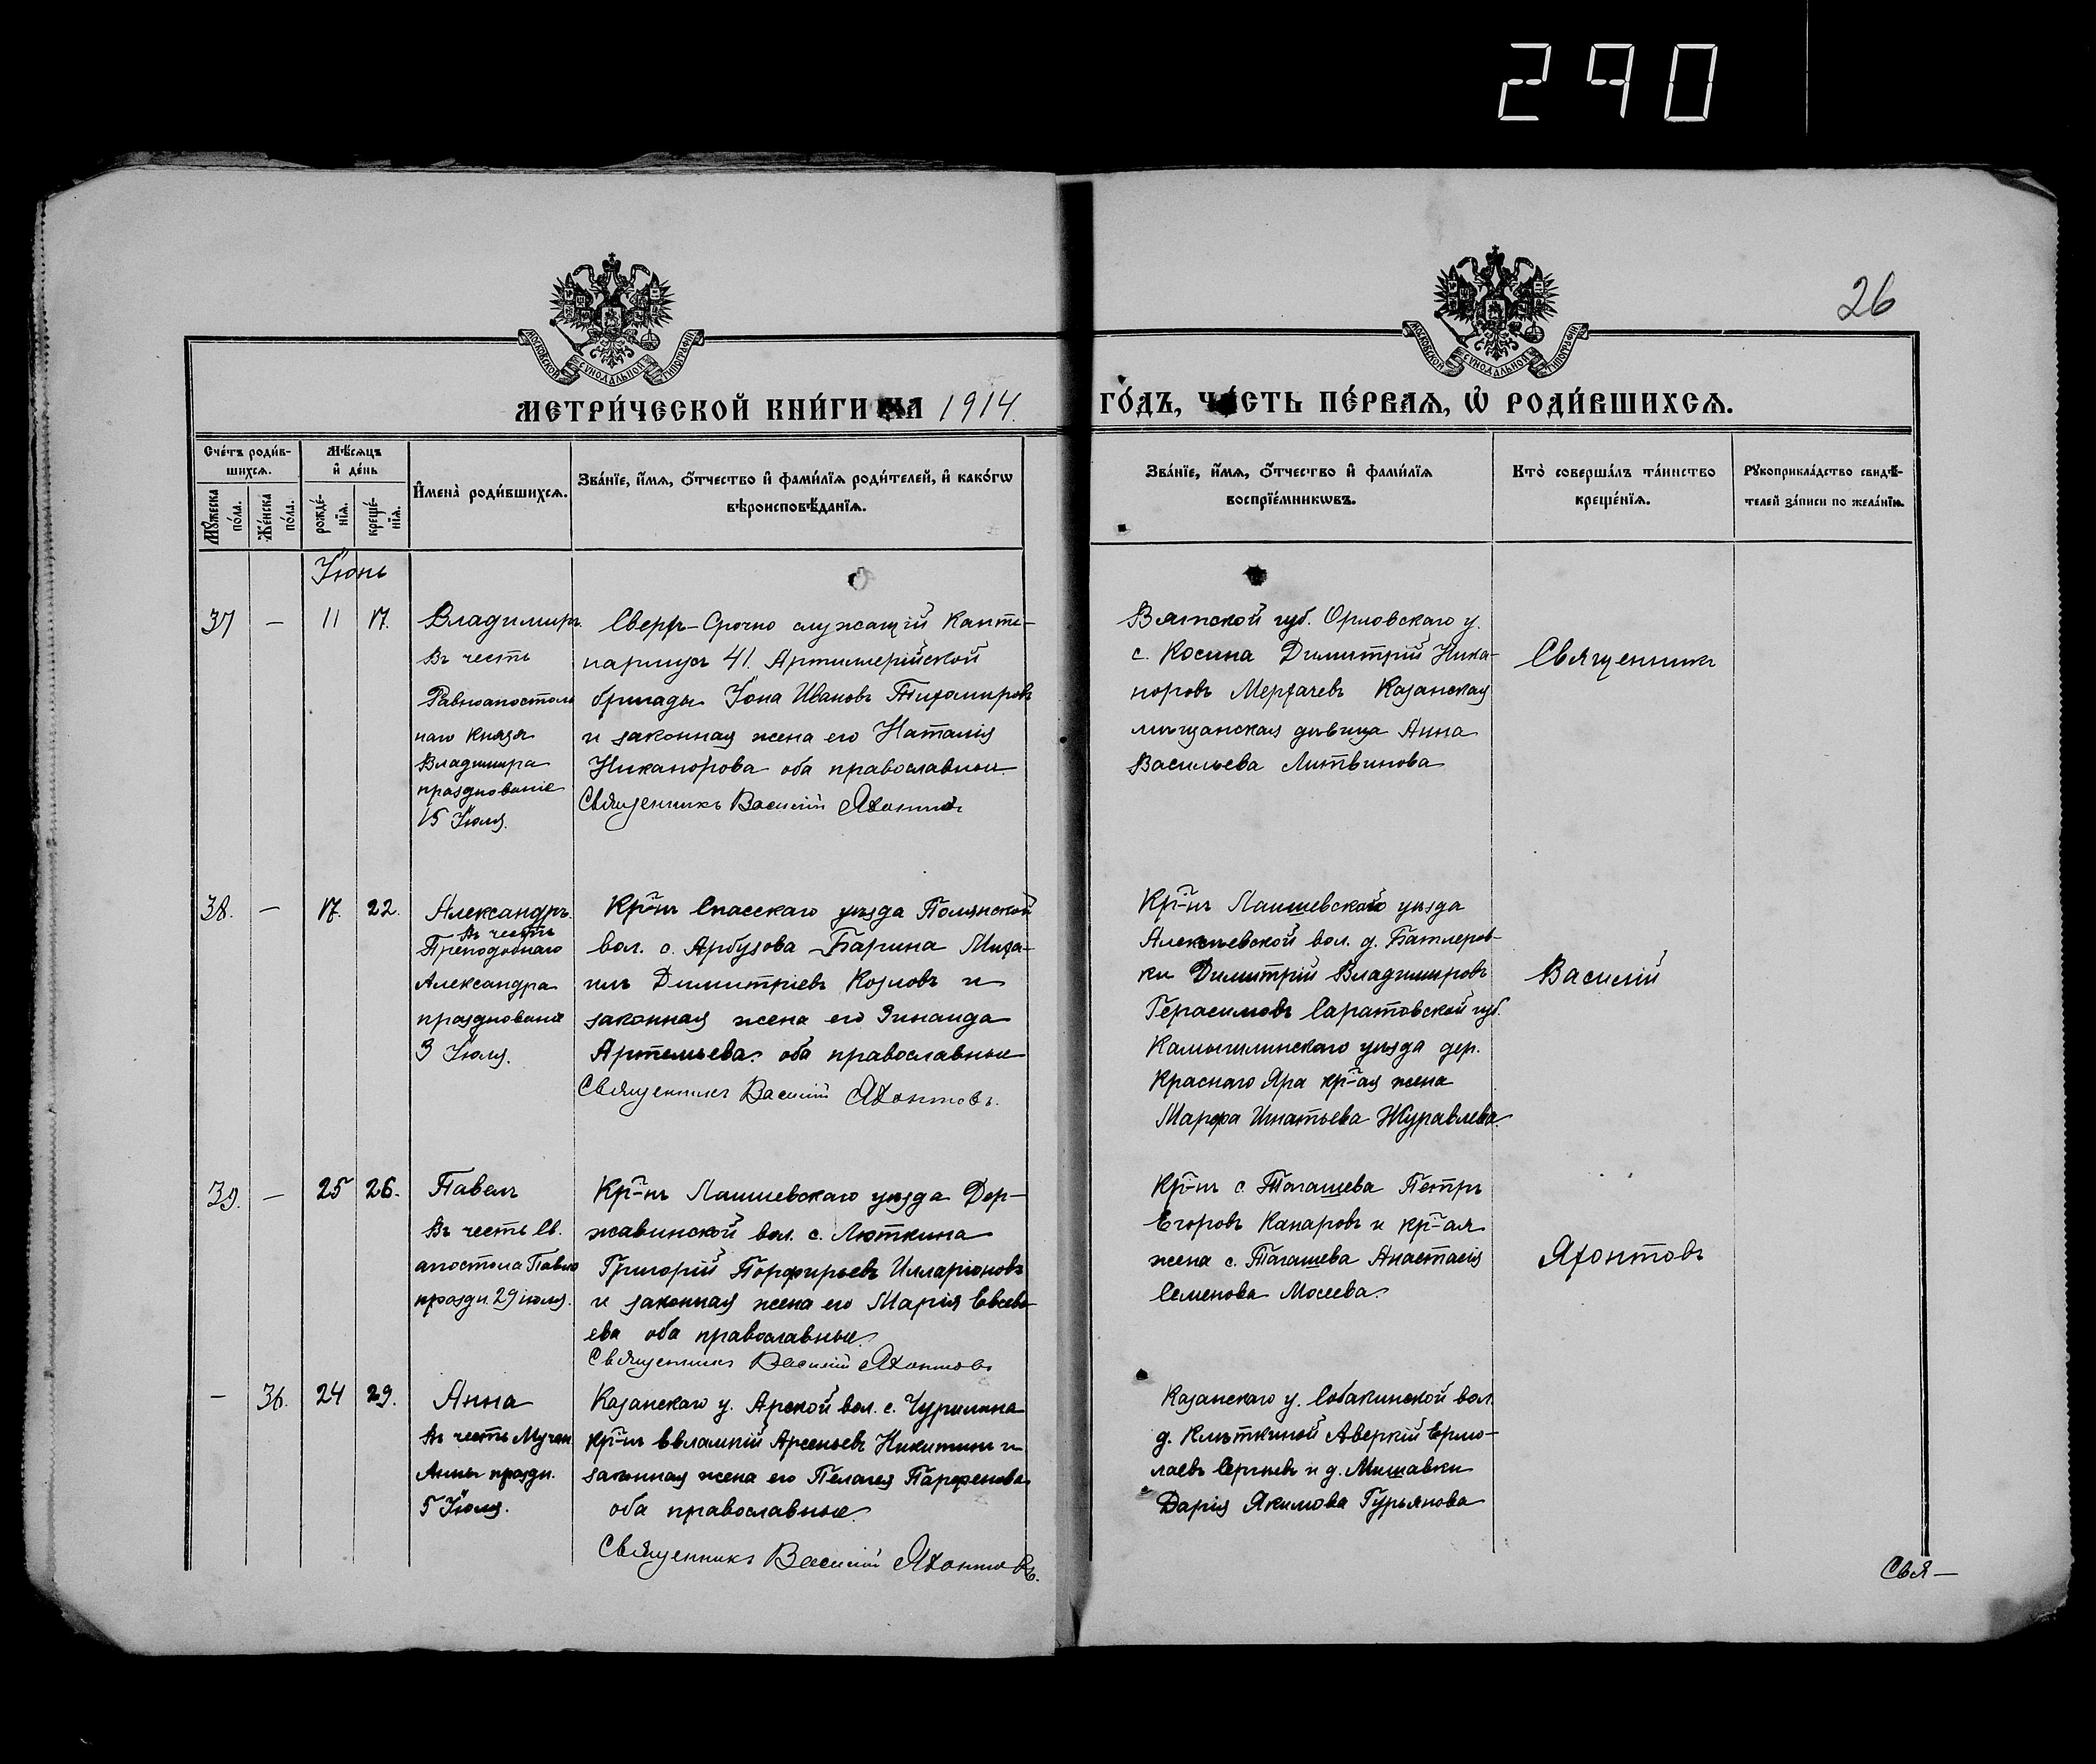 290
26
МОСКОВСКОЙ СѴНОДАЛЬНОЙ ТИПОГРАФІИ
МОСКОВСКОЙ СѴНОДАЛЬНОЙ ТИПОГРАФІИ
МЕТРИ́ЧЕСКОЙ КНИ́ГИ НА 1914. ГО́ДЪ, ЧА́СТЬ ПЕ́РВАЯ, Ѡ РОДИ́ВШИХСЯ.
Сче́тъ роди́в-
шихся.
Мꙋ́жеска по́ла.
Же́нска по́ла.
Мѣ́сяцъ
и҆ де́нь
рожде́-
нїя.
креще́-
нїя.
И҆мена̀ роди́вшихся.
Зва́нїе, и҆́мя, ѻ҆́тчество и҆ фами́лїя роди́телей, и҆ како́гѡ
вѣроисповѣ́данїя.
Зва́нїе, и҆́мя, ѻ҆́тчество и҆ фами́лїя
воспрїе́мникѡвъ.
Кто̀ соверша́лъ та́инство
креще́нїя.
Рꙋкоприкла́дство свидѣ́-
телей за́писи по жела́нїю.
Іюнь
37 — 11 17.
Владимиръ
Въ честь
Равноапостоль
наго Князя
Владимира
празднованіе
15 Іюля.
Сверхъ-Срочно служащій Канте-
нармусъ 41. Артиллерійской
бригады Іона Ивановъ Тихомировъ
и законная жена его Наталія
Никанорова оба православные
Священникъ Василій Яхонтовъ
Вятской губ. Орловскаго у.
с. Косина Димитрій Ника-
норовъ Мерзачевъ Казанская
мѣщанская дѣвица Анна
Васильева Литвинова
Священникъ
38. — 17. 22.
Александръ.
Въ честь
Преподобнаго
Александра
празднованіе
3 Іюля.
Кр-нъ Спасскаго уѣзда Полянской
вол. с. Арбузова Барина Миха-
илъ Димитріевъ Козловъ и
законная жена его Зинаида
Артемьева. оба православные
Священникъ Василій Яхонтовъ.
Кр-нъ Лаишевскаго уѣзда
Алексѣевской вол. д. Батлеров-
ки Димитрій Владимировъ
Герасимовъ Саратовской губ.
Камышлинскаго уѣзда дер.
Краснаго Яра кр-ая жена
Марфа Игнатьева Журавлева.
Василій
39. — 25 26.
Павелъ
Въ честь Св.
апостола Павла
праздн. 29 іюля.
Кр-нъ Лаишевскаго уѣзда Дер-
жавинской вол. с. Люткина
Григорій Порфирьевъ Илларіоновъ
и законная жена его Марія Евсевь-
ева оба православные.
Священникъ Василій Яхонтовъ
Кр-нъ с. Тагашева Петръ
Егоровъ Канаровъ и кр-ая
жена с. Тагашева Анастасія
Семенова Мосеева.
Яхонтовъ
— 36. 24 29.
Анна
Въ честь Мучен
Анны праздн.
5 Іюля.
Казанскаго у. Арской вол. с. Чурилина
кр-нъ Евлампій Арсеньевъ Никитинъ и
законная жена его Пелагея Парфенова
оба православные.
Священникъ Василій Яхонтовъ.
Казанскаго у. Собакинской вол.
д. Клыткиной Аверкій Ермо-
лаевъ Сергѣевъ и д. Мишавки
Дарія Якимова Гурьянова
Свя—